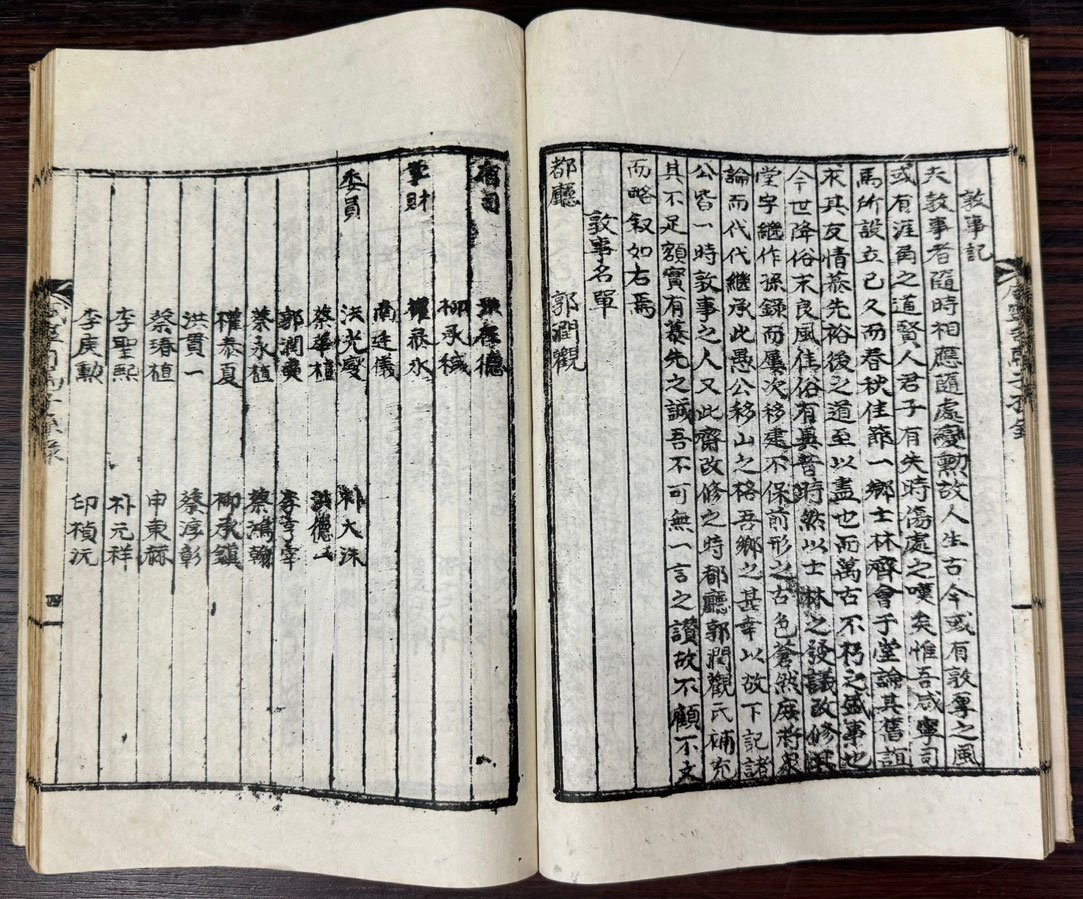 敦事記
夫敦事者隨時相應隨處變動故人生古今或有敦厚之風
或有涯角之道賢人君子有失時傷處之嘆矣惟吾咸寧司
馬所設立已久而春秋佳節一鄉士林齊會于堂論其舊誼
來其友情慕先裕後之道至以盡也而萬古不朽之盛事也
今世降俗末良風佳俗有異昔時然以士林之發議改修
堂宇繼作孫錄而屢次移建不保前形之古色蒼然庭將
論而代代繼承此愚公移山之格吾鄉之甚幸以故下記諸
公皆一時敦事之人又此齋改修之時都廳郭潤觀氏補充
其不足額實有慕先之誠吾不可無一言之讚故不顧不文
而略叙如右焉
敦事名單
都廳 郭潤觀
有司 德
柳承
掌財 權泰永
南廷儀
委員 洪光燮 朴大洙
蔡華植 洪德
郭潤 李
蔡永植 蔡鴻翰
權泰夏 柳承鎭
洪貫一 蔡淳彰
蔡瑃植 申東
李聖熙 朴元祥
李庚勳 印楨沅
四